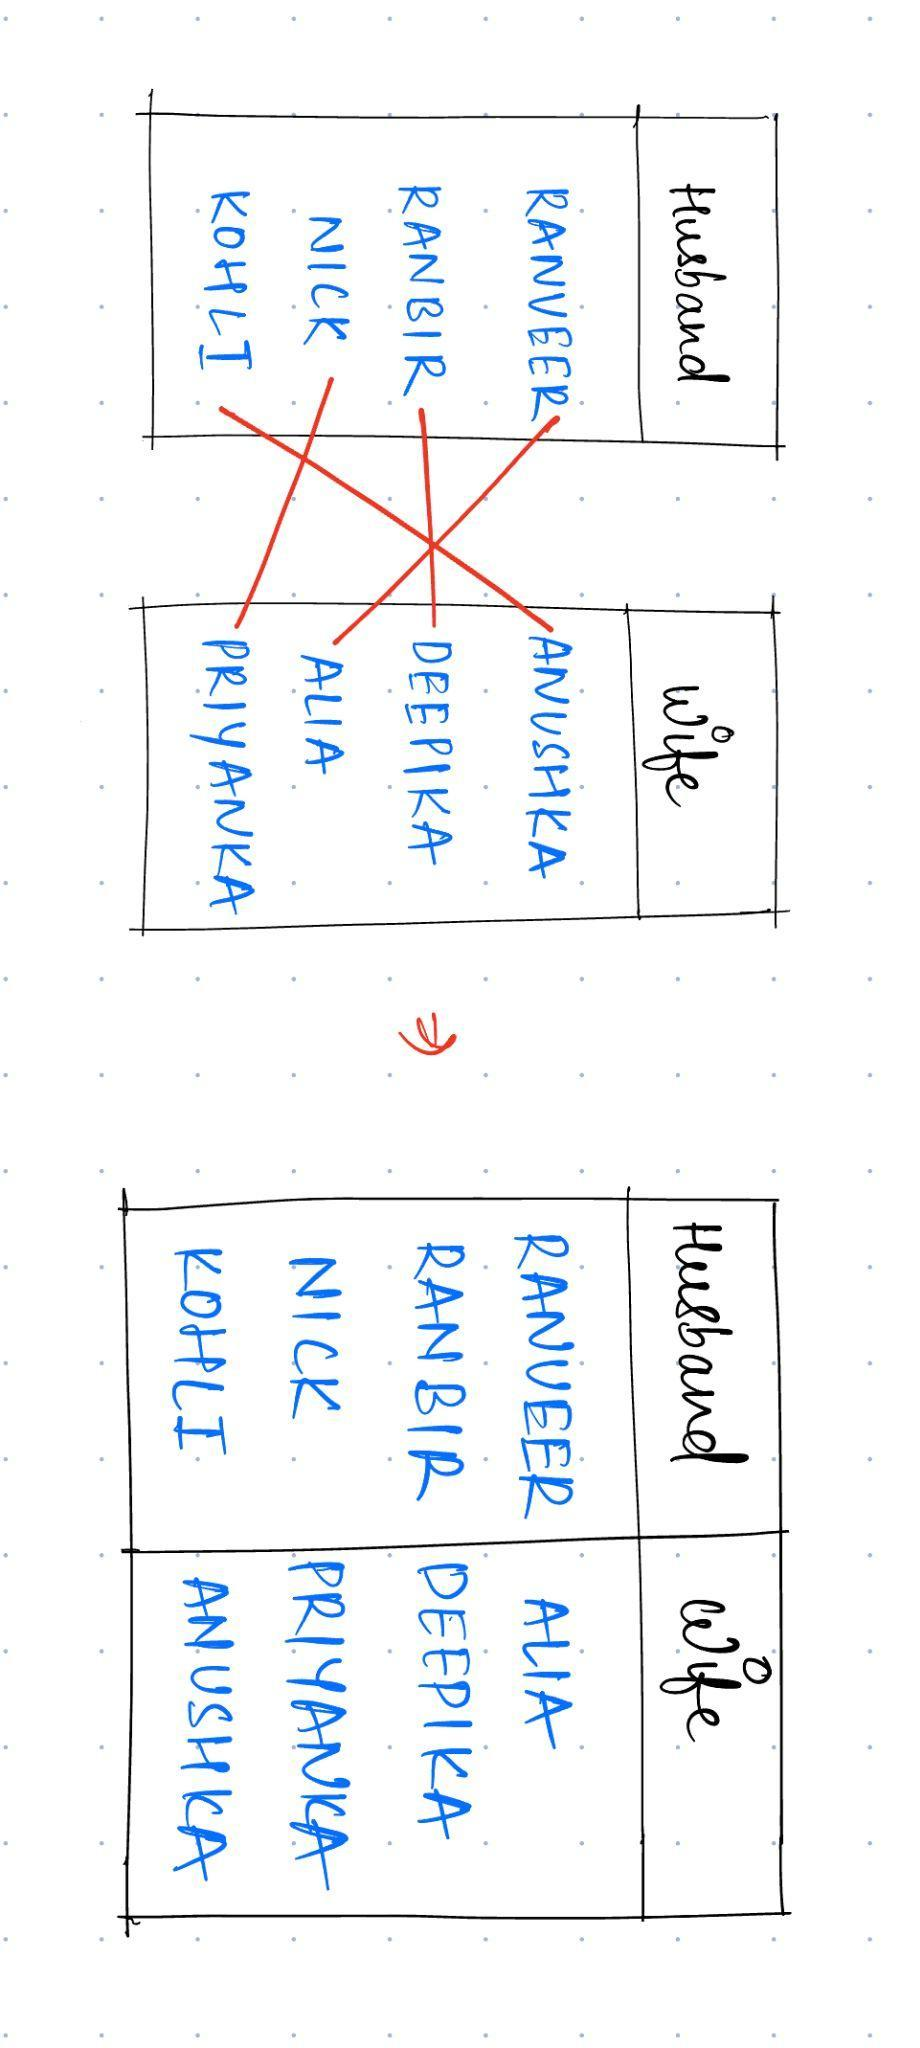 Husband
RANVEER
RANBIR
NICK
KOHLI
Wife
ANUSHKA
DEEPIKA
ALIA
PRIYANKA
Husband Wife
RANVEER ALIA
RANBIR DEEPIKA
NICK PRIYANKA
KOHLI ANUSHKA